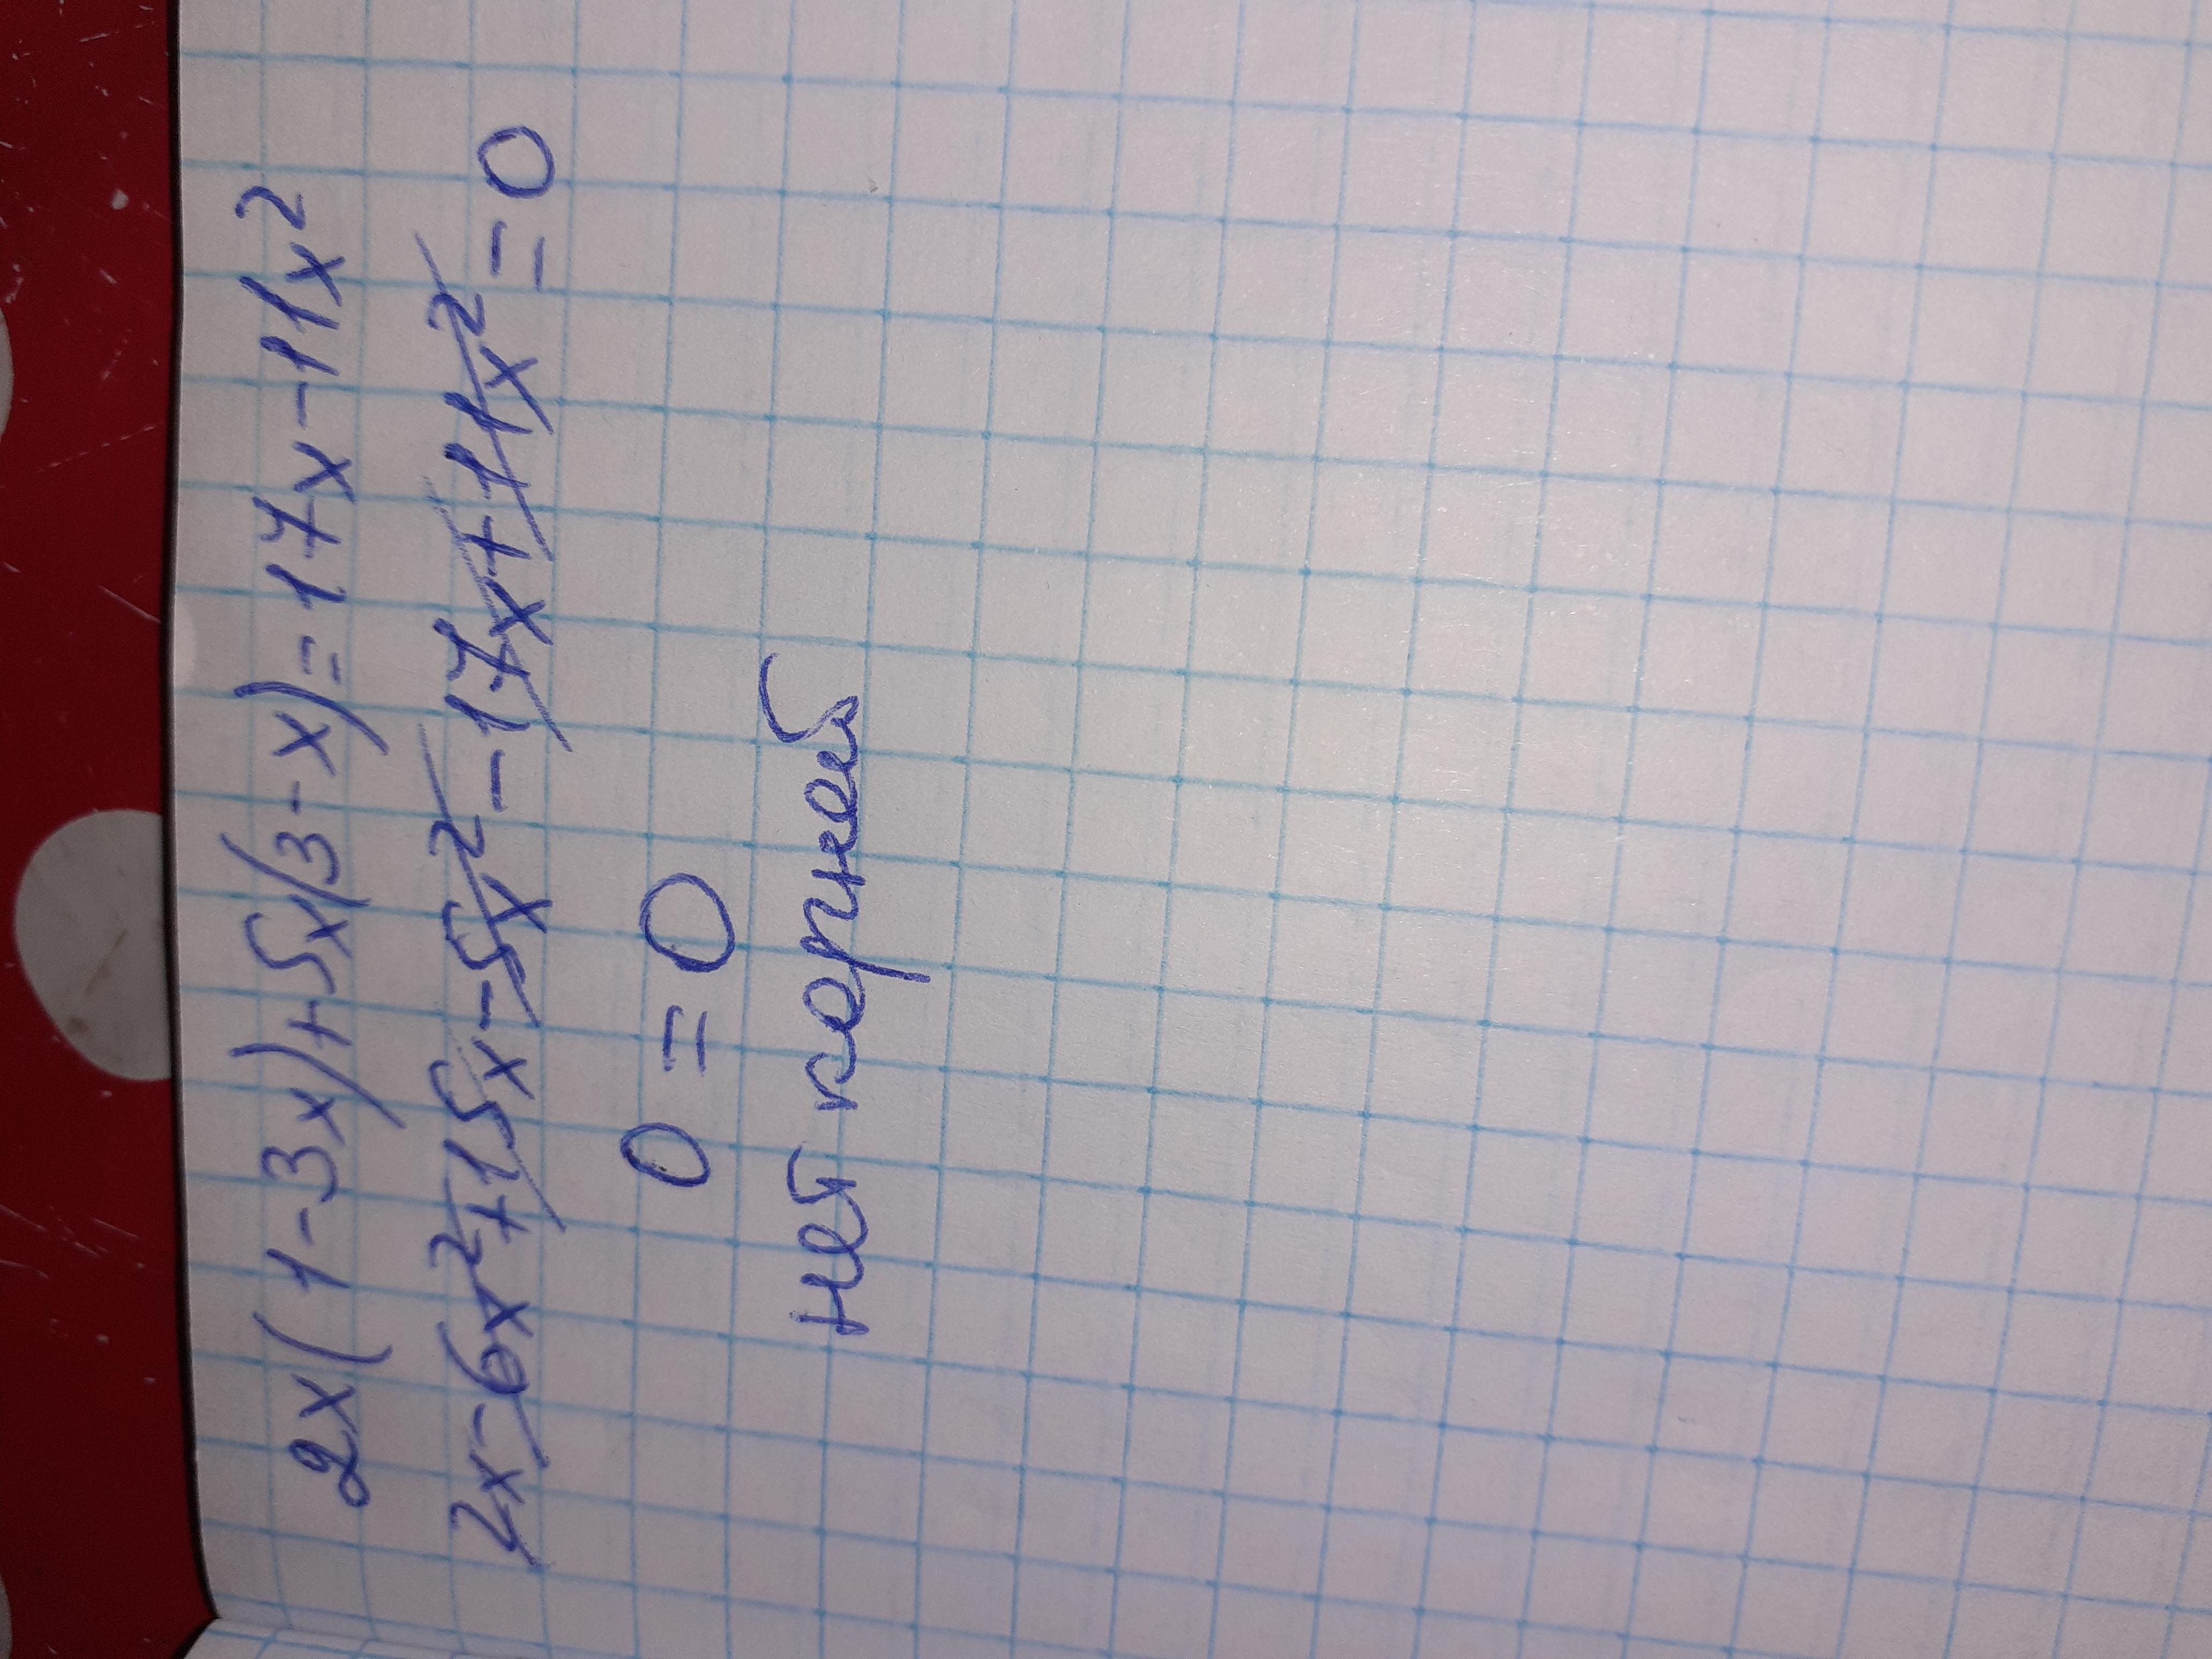 2x(1-3x)+5x(3-x)=17x-11x²
2x-6x²+15x-5x²-17x+11x²=0
0=0
нет корней